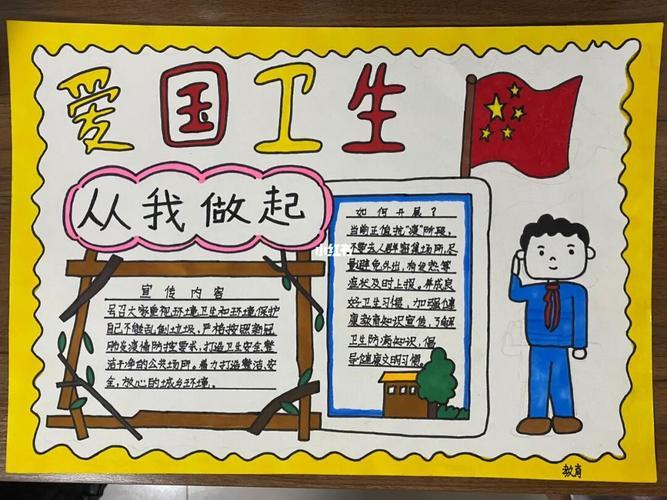 爱国卫生
从我做起
小红书
宣传内容
号召大家重视环境卫生和环境保护
自己不能乱倒垃圾,严格按照新冠
肺炎疫情防控要求,打造卫生安全,整
洁干净的公共场所。着力打造整洁、安
全,放心的城乡环境。
如何开展?
当前正值抗"疫"阶段,
不要去人群密集场所,尽
量避免外出,有发热等
症状及时上报,养成良
好卫生习惯,加强健
康教育知识宣传,了解
卫生防病知识,倡
导健康文明习惯。
教育